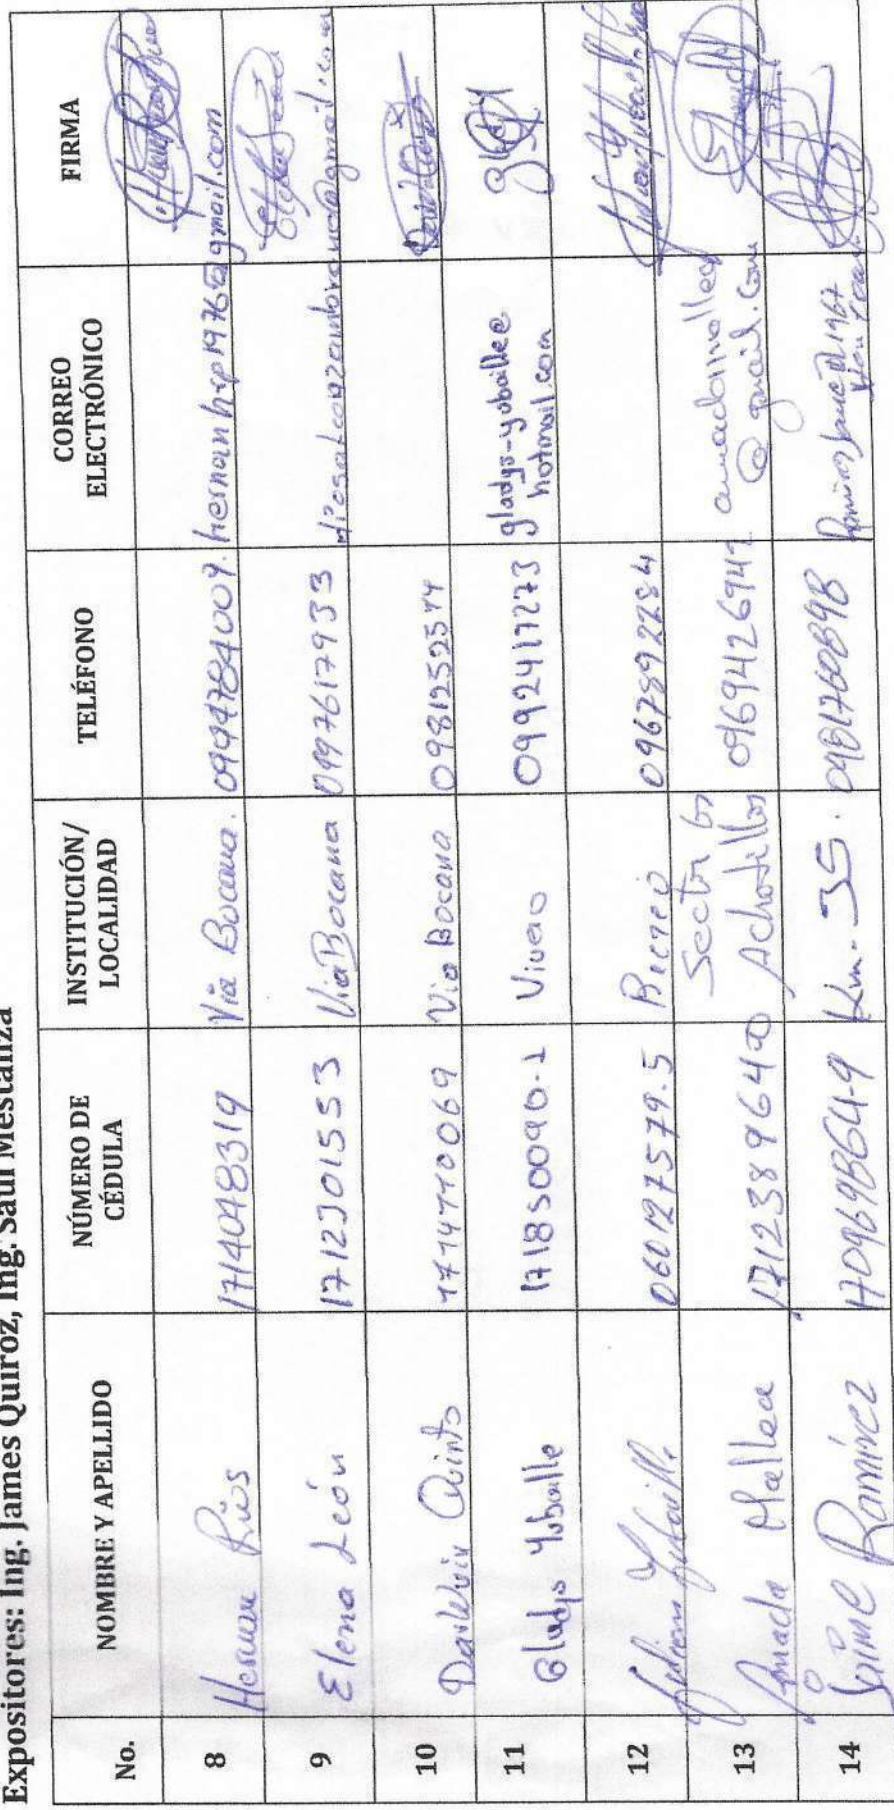 Expositores: Ing. James Quiroz, Ing. Saúl Mestanza
No. NOMBRE Y APELLIDO NÚMERO DE CÉDULA INSTITUCIÓN/ LOCALIDAD TELÉFONO CORREO ELECTRÓNICO FIRMA
8 Hernan Ríos 1714048319 Via Bocana. 0994784009. hernanhrp1976@gmail.com
9 Elena León 1712301553 Via Bocana 0997617933
10 Darwin Quinto 1714710069 Via Bocana 0981252574
11 Gladys Yubaille 171850090-1 Vivero 0992417273 gladys-yubaille@
hotmail.com
12 Julian Yubaille 060127579-5 Recreo 0967892284
13 Amada Mallea 1712389640 Sector los
Achotillos 0969426942 amadamallea
@gmail.com
14 Jaime Ramírez 170969864-9 Km-35. 0981760898